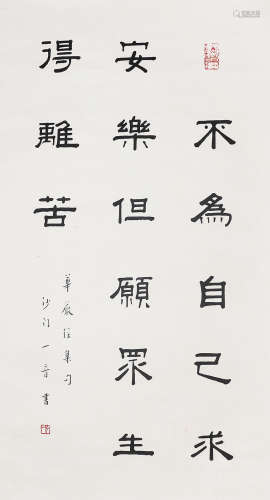 不為自己求
安樂但願眾生
得離苦
華嚴經集句
沙門一音書